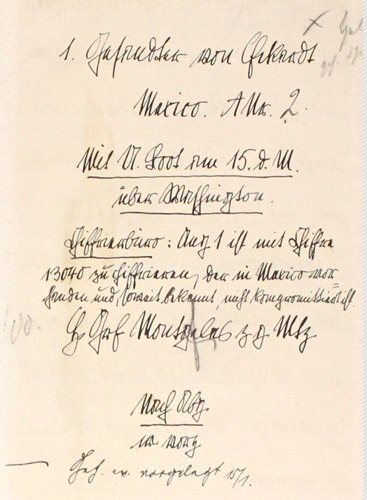 1. Gesandter von Eckardt
Mexico. A Nr. 2.
Mit U. Boot am 15. d. M.
über Washington.
Chiffrierbüro: Anz 1 ist mit Chiffre
13040 zu chiffrieren, der in Mexico vor=
handen und, soweit bekannt, nicht kompromittiert ist.
H Graf Montgelas z g Mtz
Nach Abg
w vorg
Geh. w. vorgelegt 15/1.